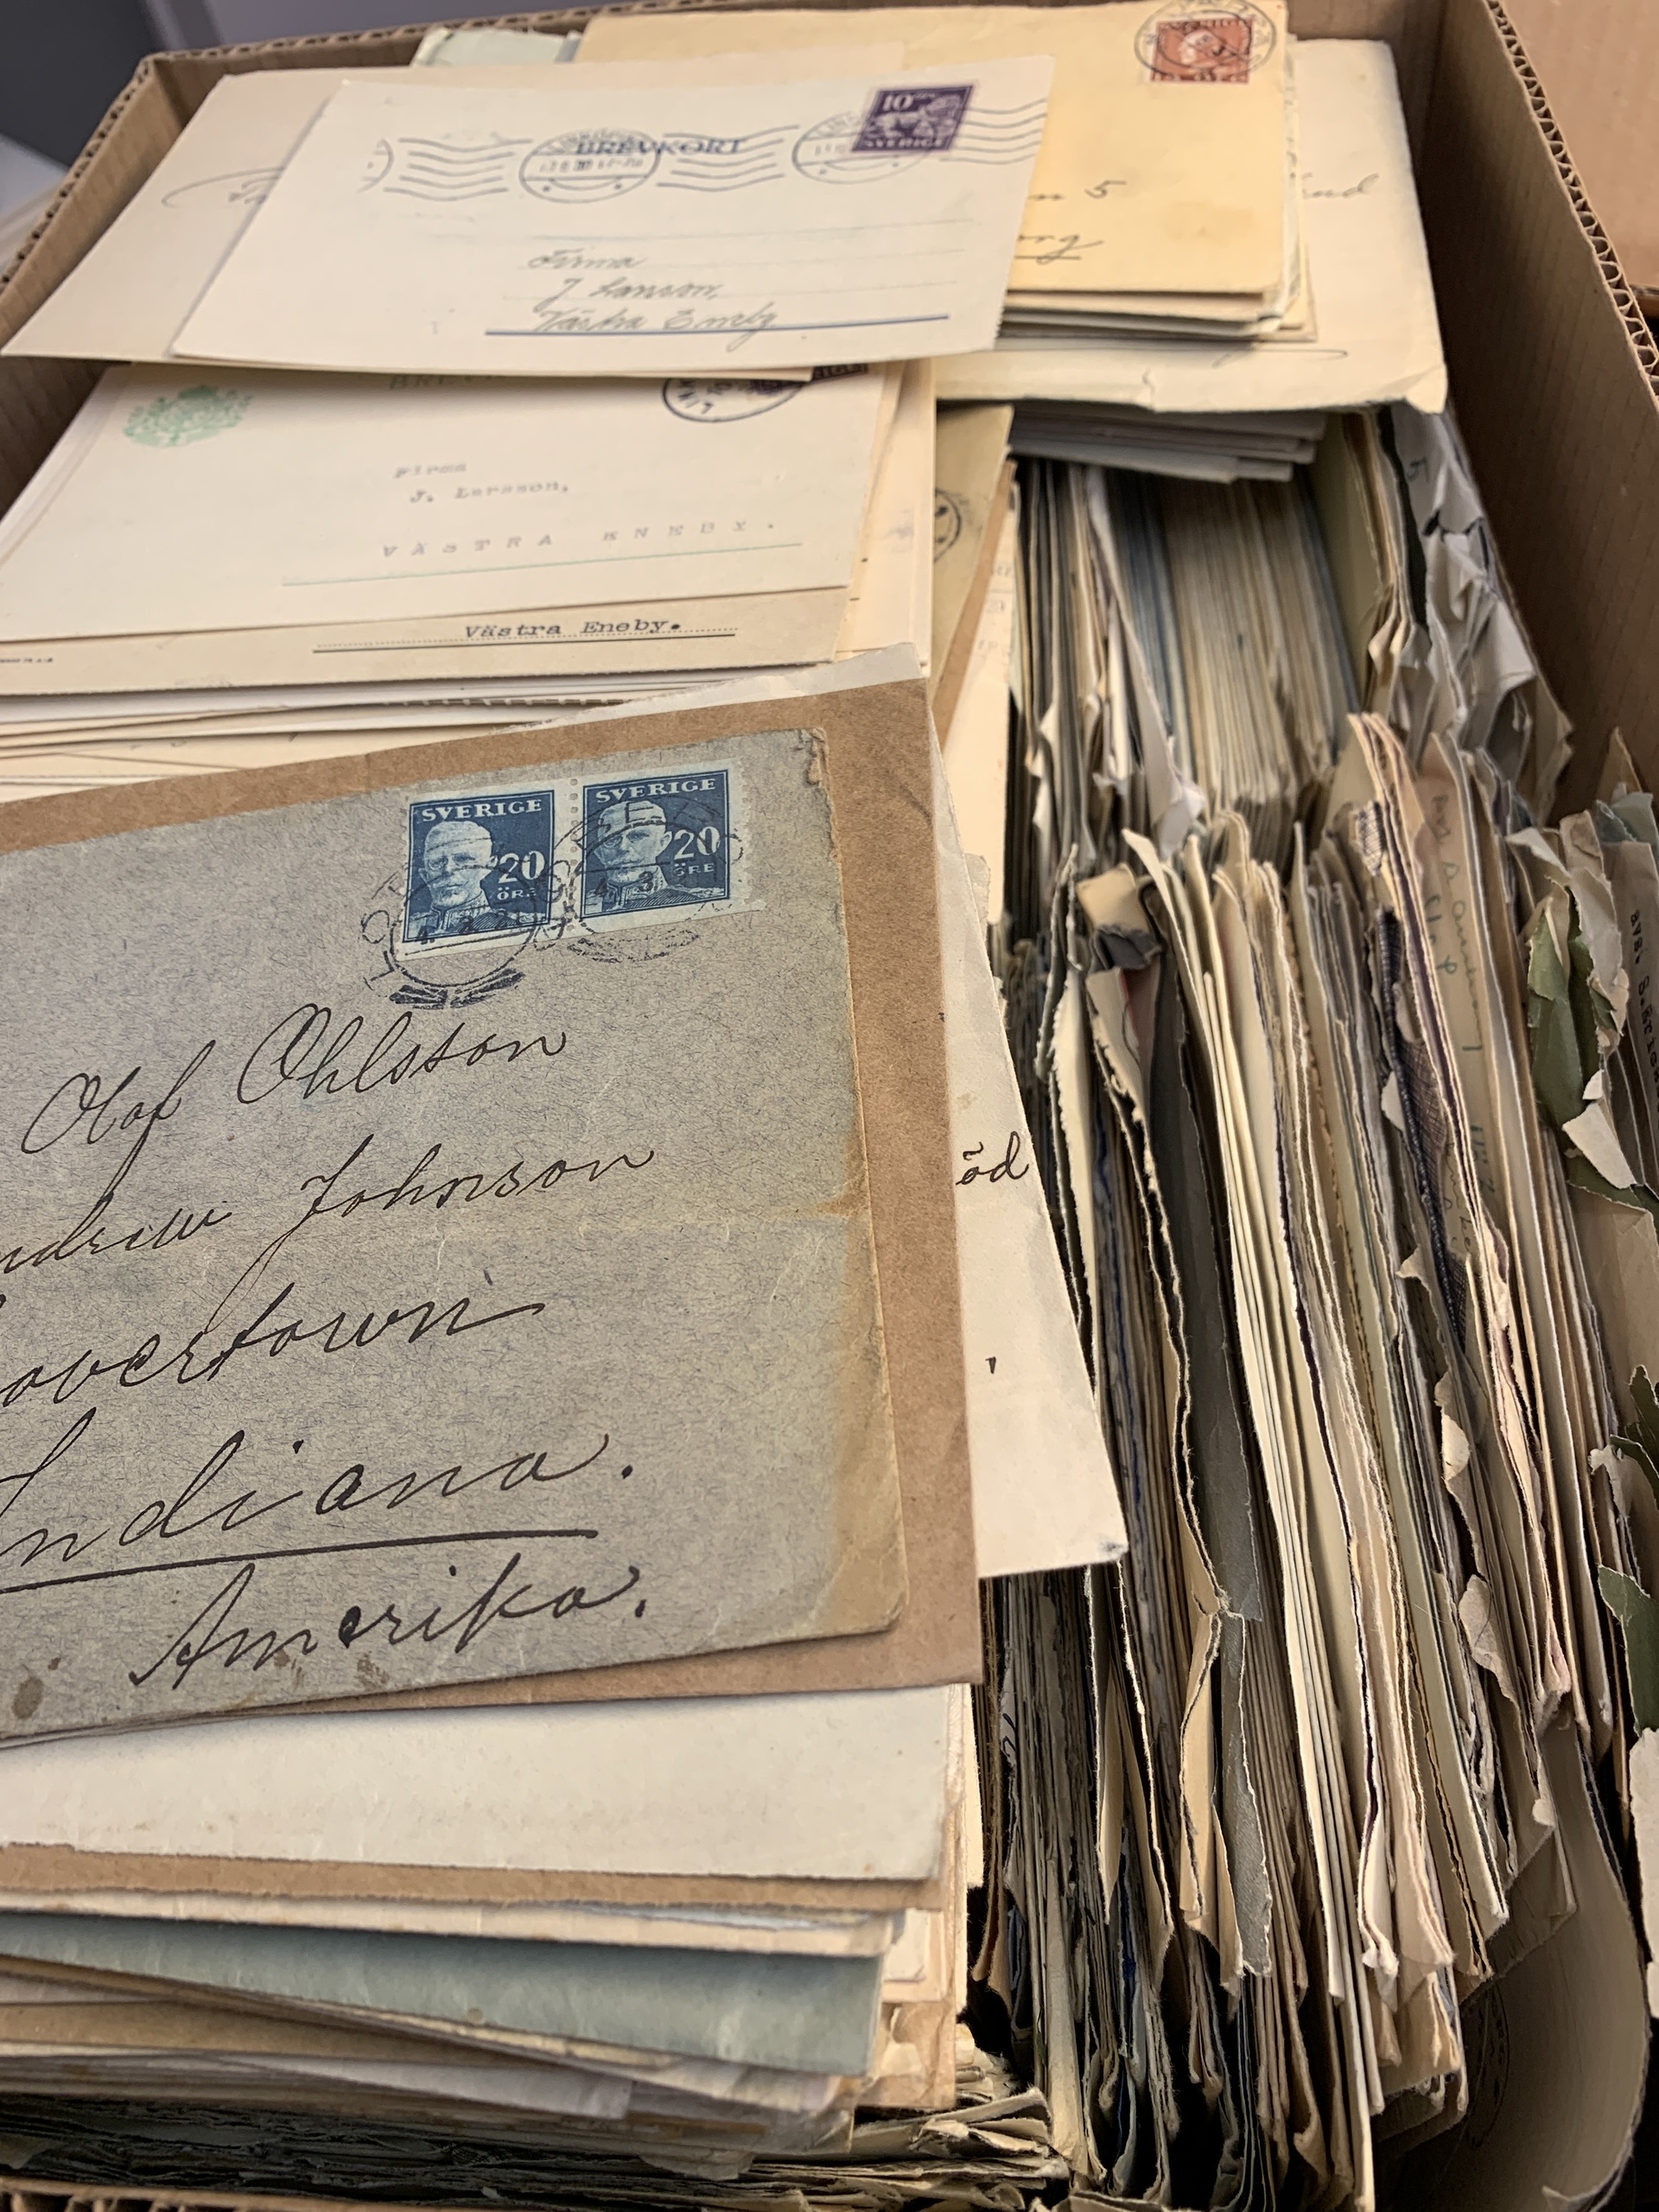 SVERIGE
10
SVERIGE
BREVKORT
Firma
J Larsson,
Västra Eneby
n 5
org
Firma
J. Larsson,
VÄSTRA ENEBY.
Västra Eneby.
SVERIGE
20
ÖRE
SVERIGE
20
ÖRE
Olof Ohlsson
ndrew Johnson
overtown
Indiana.
Amerika.
öd